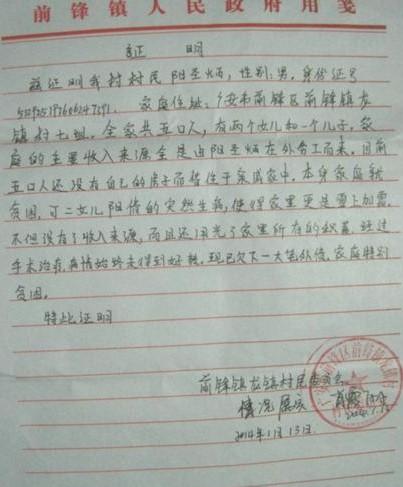 前锋镇人民政府用笺
证 明
兹证明我村村民阳圣炳，性别：男，身份证号
家庭住址：广安市前锋区前锋镇龙
镇村七组，全家共五口人，有两个女儿和一个儿子，家
庭的主要收入来源全是由阳圣炳在外务工而来，目前
五口人还没有自己的房子而暂住于亲戚家中，本身家庭就
贫困，可二女儿阳倩的突然生病，使得家里更是雪上加霜，
不但没有了收入来源，而且还用光了家里所有的积蓄，经过
手术治疗，病情始终未得到好转，现已欠下一大笔外债，家庭特别
贫困。
特此证明
前锋镇龙镇村民委员会
情况属实
2014年1月13日